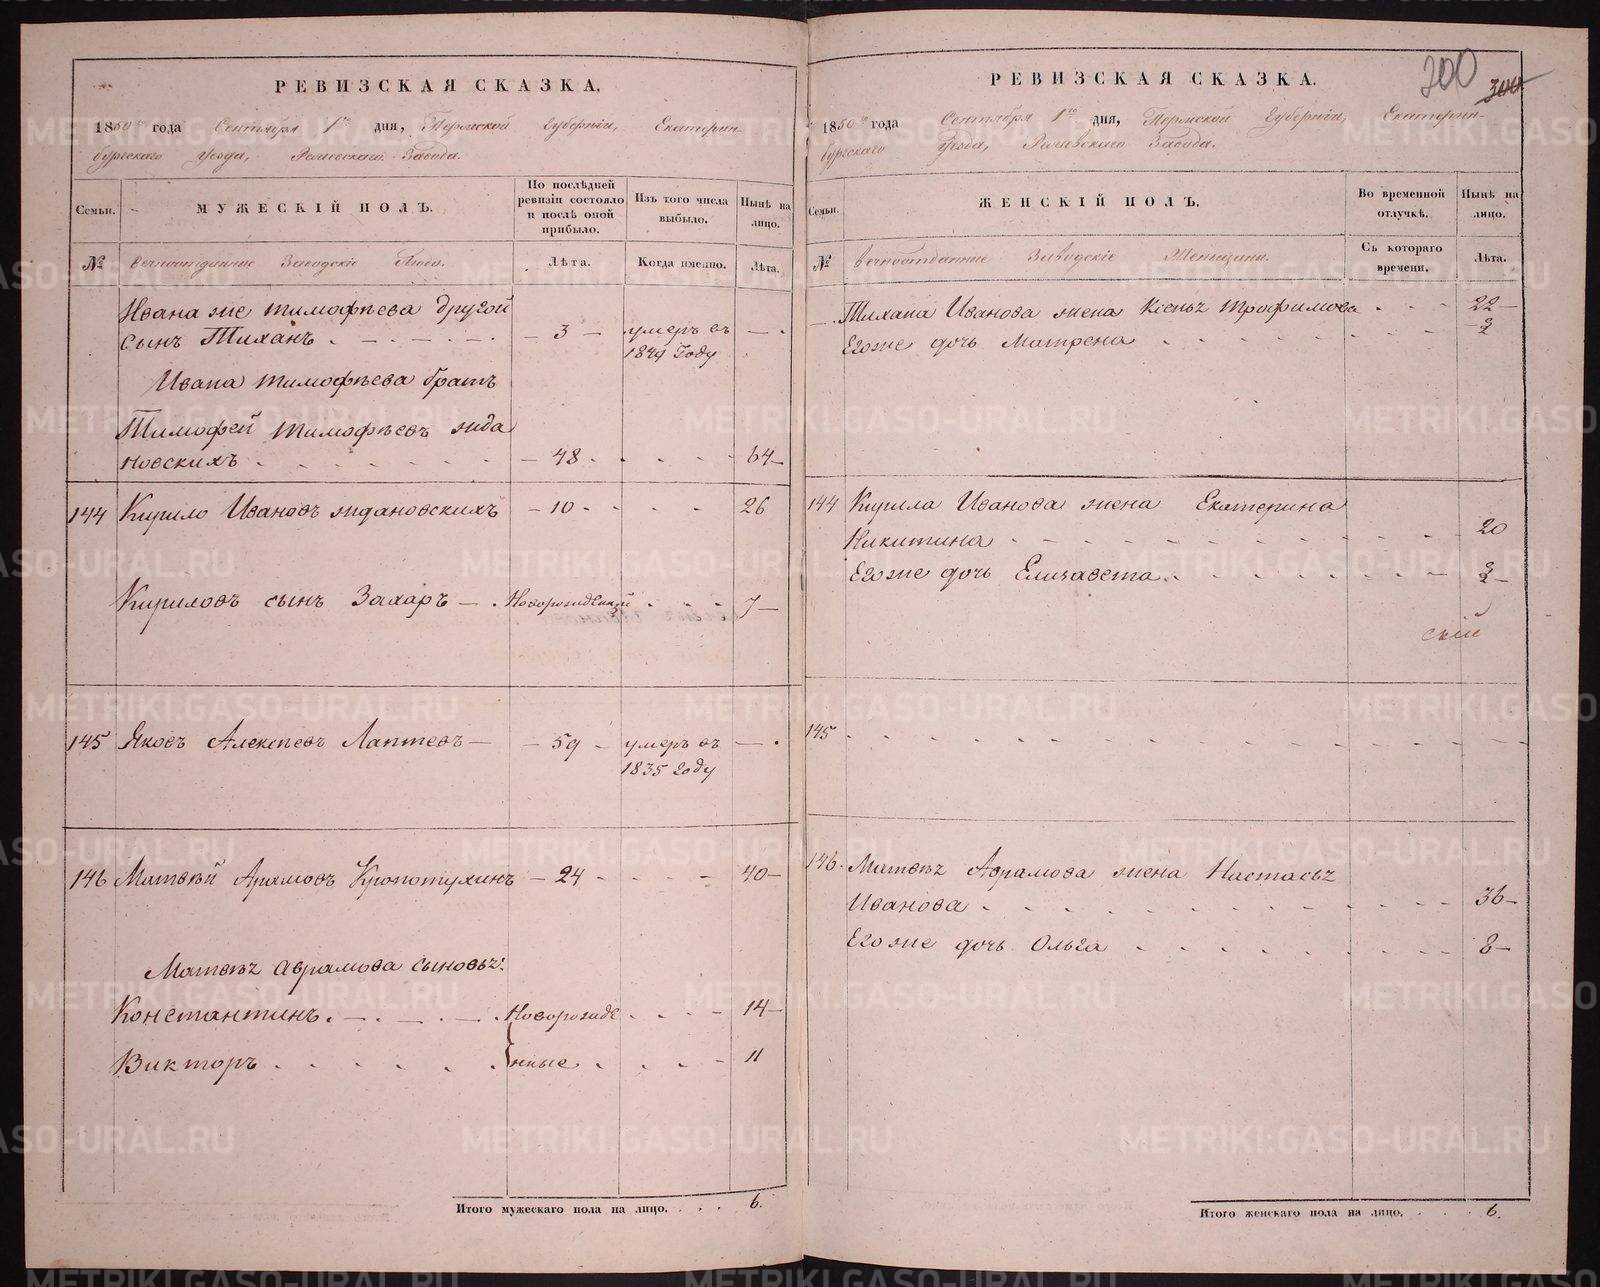 РЕВИЗСКАЯ СКАЗКА,
1850го года Сентября 1го дня, Пермской Губерніи, Екатерин-
бургскаго Уезда, Завода.
Семьи.
МУЖЕСКІЙ ПОЛЪ.
По послѣдней ревизіи состояло и послѣ оной прибыло.
Изъ того числа выбыло.
Нынѣ на лицо.
№
вечноотданные Заводскіе Люди.
Лѣта.
Когда именно.
Лѣта.
Ивана же тимофѣева другой
сынъ Тиханъ. — 3 — умеръ въ — .
1849 Году
Ивана тимофѣева братъ
Тимофей тимофѣевъ жда
новскихъ — 48 . 64 —
144 Кирило Ивановъ ждановскихъ — 10 . 26
Кириловъ сынъ Захаръ — . Новорожденный 7 —
145 Яковъ Алексѣевъ Лаптевъ — — 59 — умеръ въ — .
1835 году
146 Матвѣй Арамовъ Кропотухинъ — 24 . 40 —
Матвѣя Аврамова сыновья:
Константинъ. Новорожде 14 —
Викторъ нные 11
Итого мужескаго пола на лицо. 6.
200
300
РЕВИЗСКАЯ СКАЗКА.
1850го года Сентября 1го дня, Пермской Губерніи, Екатерин-
бургскаго Уезда, Завода.
Семьи.
ЖЕНСКІЙ ПОЛЪ.
Во временной отлучкѣ.
Нынѣ на лицо.
№
вечноотданные Заводскіе Женщины.
Съ котораго времени.
Лѣта.
Тихана Иванова жена Ксенья трофимова 22 —
Егоже дочь Матрена
144 Кирила Иванова жена Екатерина
Никитина 20
Егоже дочь Елизавета
145
146. Матвѣя Аврамова жена Настасья
Иванова 36 —
Егоже дочь Ольга 8 —
Итого женскаго пола на лицо. 6.
METRIKI.GASO-URAL.RU